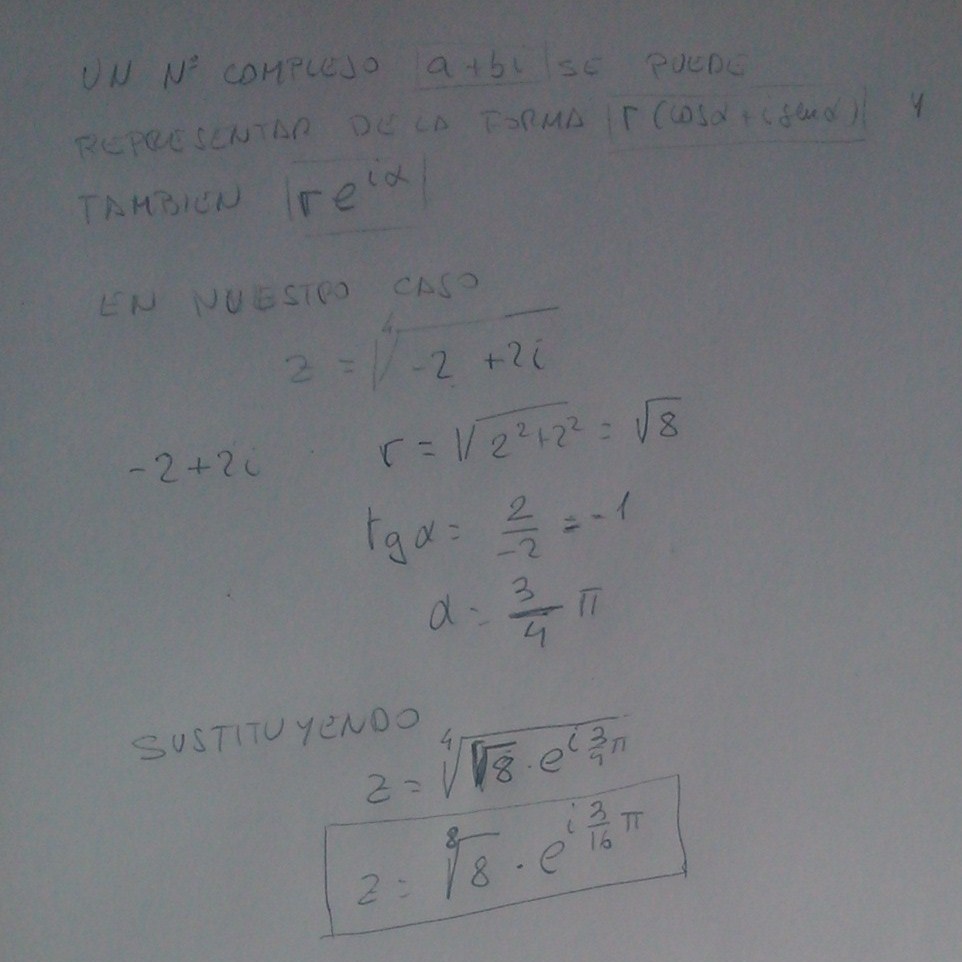 UN Nº COMPLEJO |a+bi| SE PUEDE
REPRESENTAR DE LA FORMA |r (cosα + i senα)| Y
TAMBIEN |r e^{iα}|
EN NUESTRO CASO
z = ∜(-2 + 2i)
-2+2i r = √(2²+2²) = √8
tg α = 2/-2 = -1
α = 3/4 π
SUSTITUYENDO
z = ∜(√8 · e^{i 3/4 π})
z = ⁸√8 · e^{i 3/16 π}